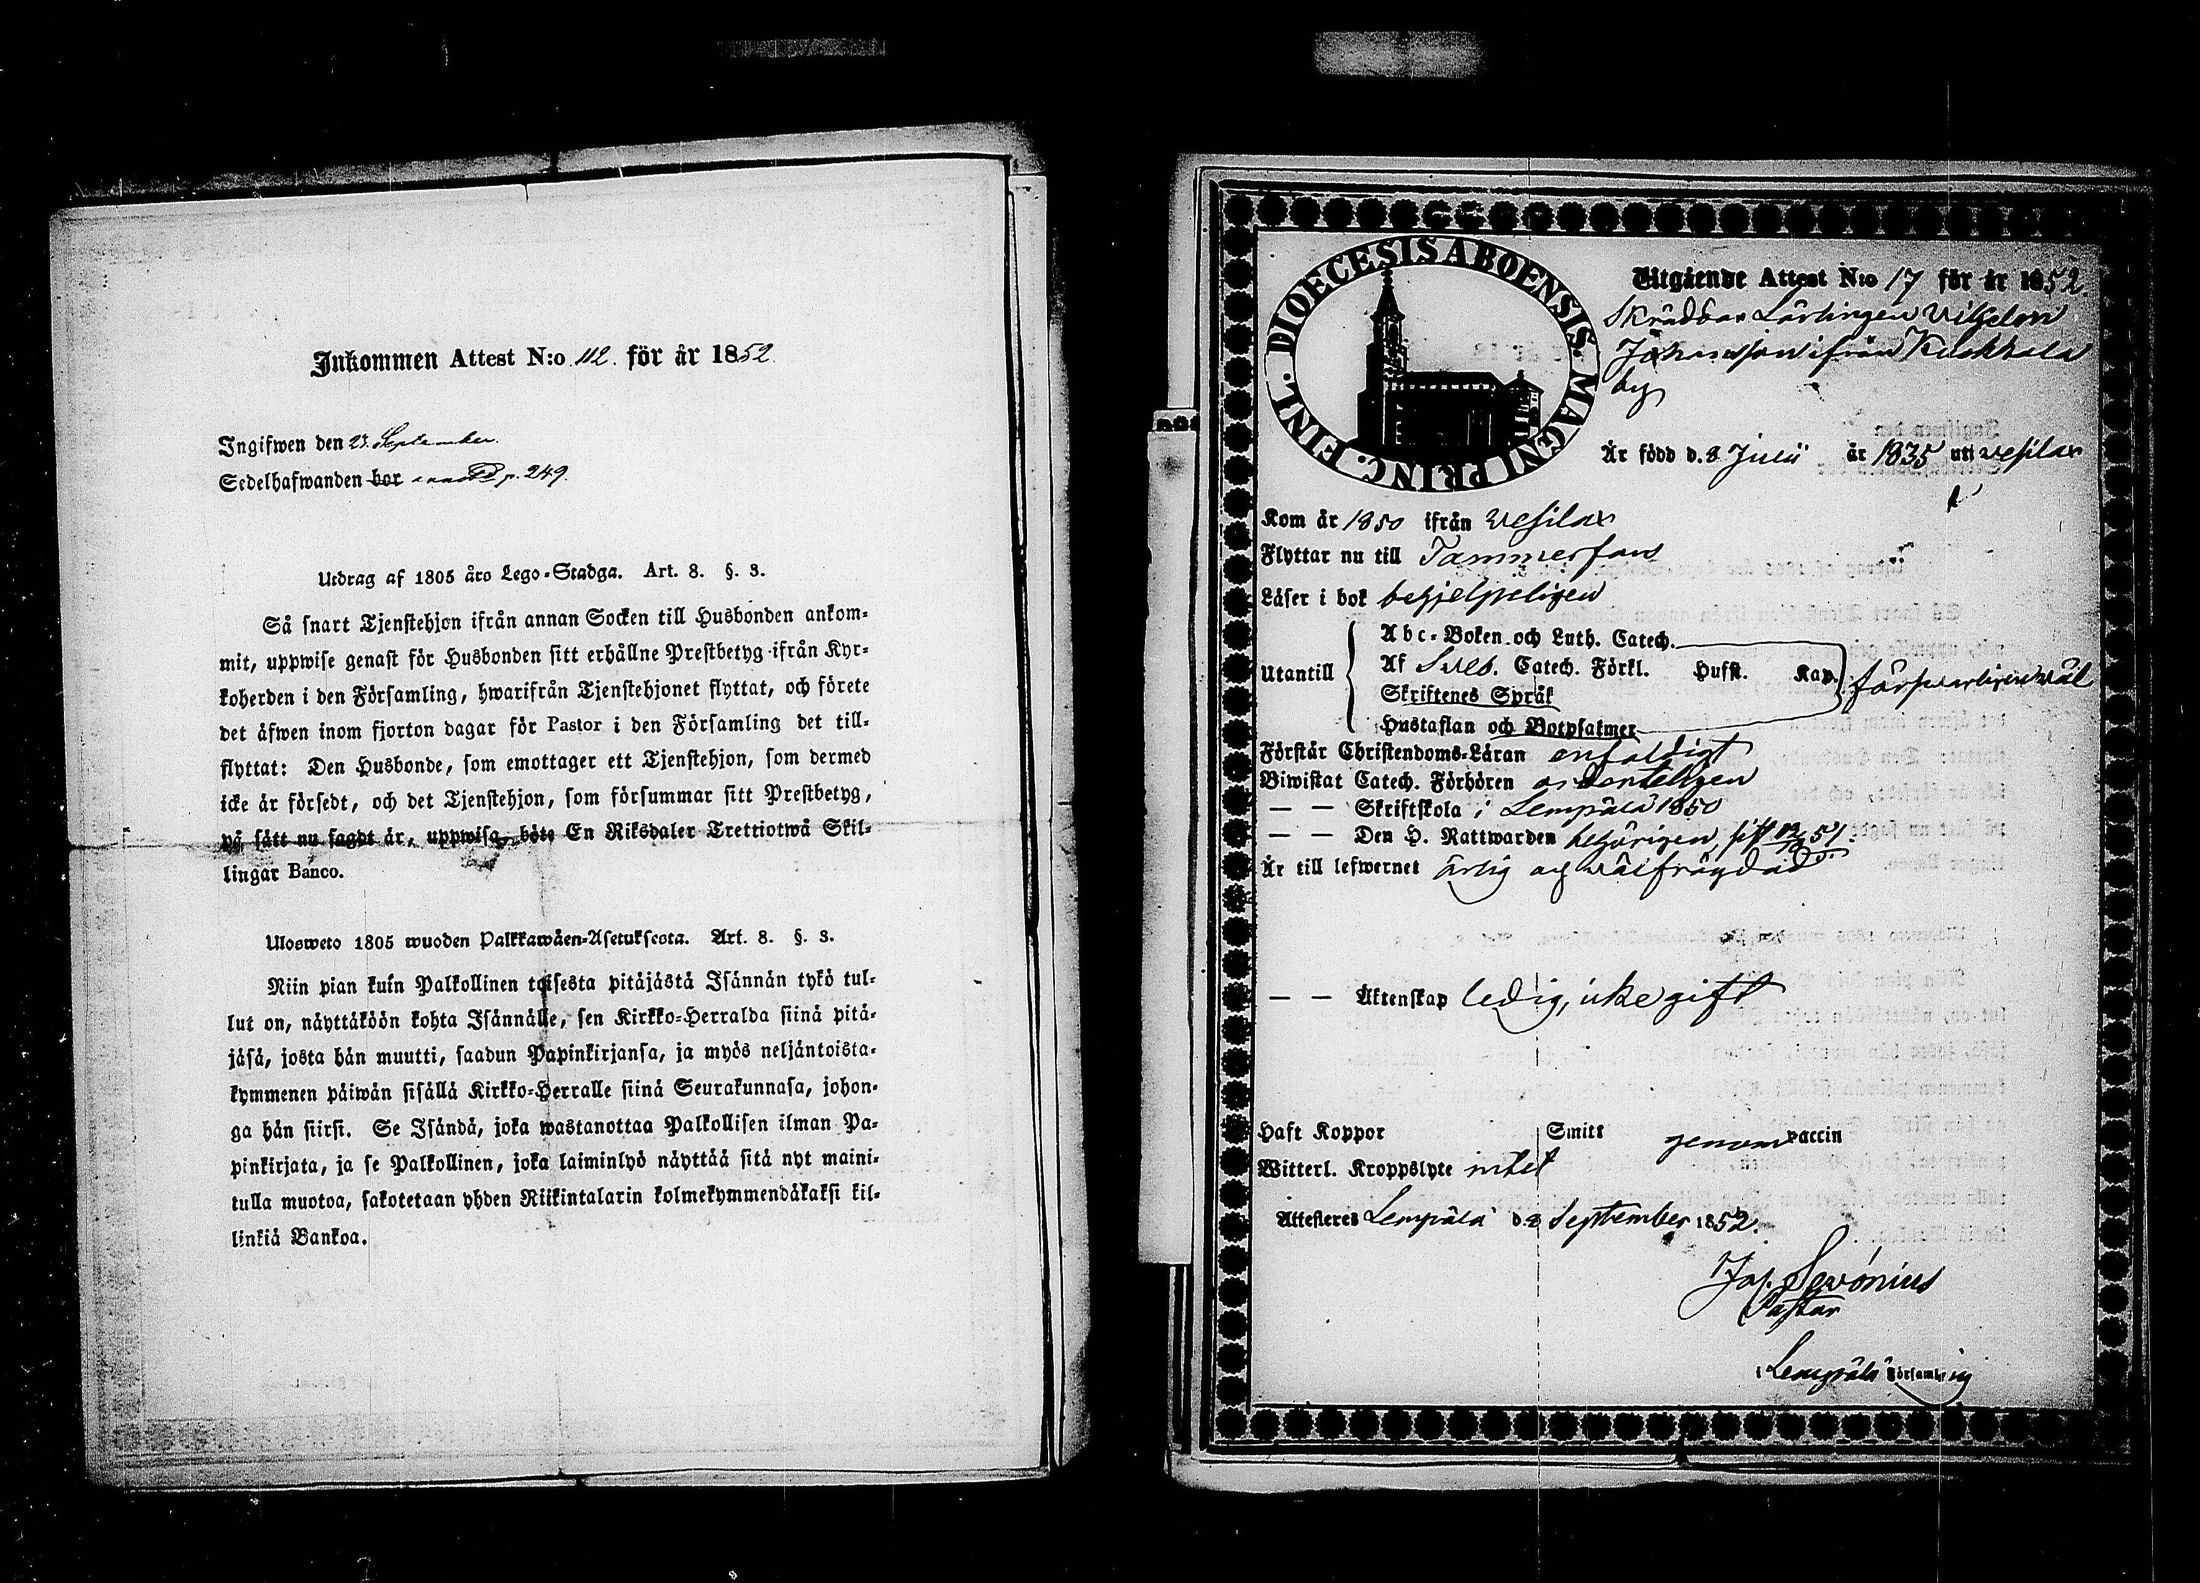 Inkommen Attest N:o 112. för år 1852
Ingifwen den 23. September.
Sedelhafwanden bor p. 249.
Utdrag af 1805 åro Lego-Stadga. Art. 8. §. 3.
Så snart Tjenstehjon ifrån annan Socken till Husbonden ankom-
mit, uppwise genast för Husbonden sitt erhållne Prestbetyg ifrån Kyr-
koherden i den Församling, hwarifrån Tjenstehjonet flyttat, och förete
det äfwen inom fjorton dagar för Pastor i den Församling det till-
flyttat: Den Husbonde, som emottager ett Tjenstehjon, som dermed
icke är försedt, och det Tjenstehjon, som försummar sitt Prestbetyg,
på sätt nu sagdt är, uppwisa, böte En Riksdaler Trettiotwå Skil-
lingar Banco.
Ulosweto 1805 wuoden Palkkawäen-Asetuksesta. Art. 8. §. 3.
Niin pian kuin Palkollinen toisesta pitäjästä Isännän tykö tul-
lut on, näyttäköön kohta Isännälle, sen Kirkko-Herralda siinä pitä-
jäsä, josta hän muutti, saadun Papinkirjansa, ja myös neljäntoista-
kymmenen päiwän sisällä Kirkko-Herralle siinä Seurakunnasa, johon-
ga hän siirsi. Se Isändä, joka wastanottaa Palkollisen ilman Pa-
pinkirjata, ja se Palkollinen, joka laiminlyö näyttää sitä nyt maini-
tulla muotoa, sakotetaan yhden Riikintalarin kolmekymmendäkaksi kil-
linkiä Bankoa.
DIOECESIS ABOENSIS. MAGNI PRINC. FINL.
Utgående Attest N:o 17 för år 1852.
Skräddar Lärlingen Vilhelm
Johansson ifrån Kuokkala
by
Är född d. 8 Julii år 1835 uti Vesilax
Kom år 1850 ifrån Vesilax
Flyttar nu till Tammerfors
Läser i bok begjelpeligen
Utantill
Abc-Boken och Luth. Catech.
Af Sveb. Catech. Förkl. Husst. Kap. försvarligen väl
Skriftenes Språk
Hustaflan och Botpsalmer
Förstår Christendoms-Läran enfaldigt
Biwistat Catech. Förhören ordenteligen
— — Skriftskola i Lempälä 1850
— — Den H. Nattwarden behörigen, sist 12/10 51.
Är till lefwernet ärlig och välfrägdad.
— — Äktenskap ledig, icke gift
Haft Koppor Smitt genom vaccin
Witterl. Kroppslyte intet
Attesteres Lempälä d. 8 September 1852.
Jos. Sevónius
Pastor
i Lempälä Församling